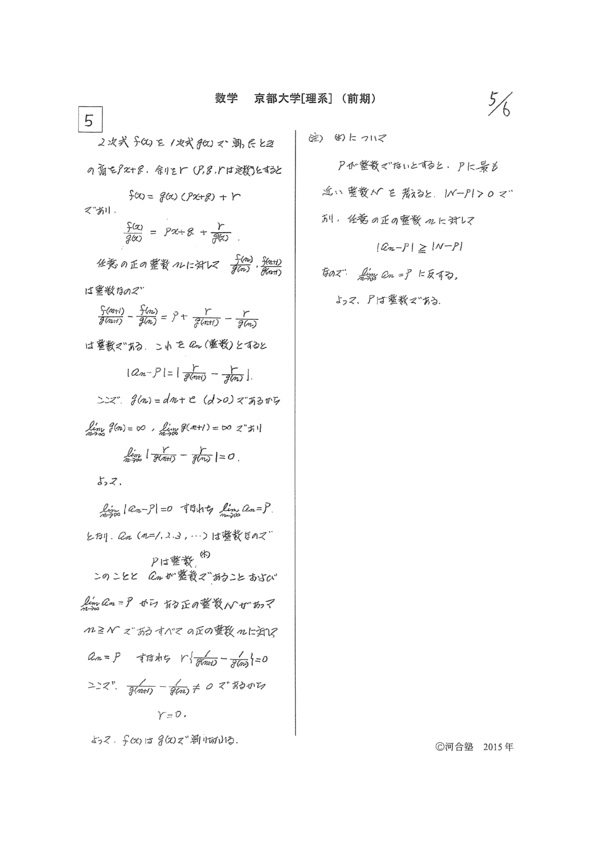 数学 京都大学[理系] (前期)
5/6
5
2次式 f(x) を 1次式 g(x) で割ったとき
の商を px+q, 余りを r (p,q,rは定数)とすると
f(x) = g(x)(px+q) + r
であり,
f(x)/g(x) = px+q + r/g(x).
任意の正の整数 n に対して f(n)/g(n), f(n+1)/g(n+1)
は整数なので
f(n+1)/g(n+1) - f(n)/g(n) = p + r/g(n+1) - r/g(n)
は整数である. これを an (整数) とすると
|an-p| = |r/g(n+1) - r/g(n)|.
ここで, g(n) = dn+e (d>0) であるから
lim n→∞ g(n) = ∞, lim n→∞ g(n+1) = ∞ であり
lim n→∞ |r/g(n+1) - r/g(n)| = 0.
よって,
lim n→∞ |an-p| = 0 すなわち lim n→∞ an = p.
となり, an (n=1,2,3,…) は整数なので
pは整数. (*)
このことと anが整数であること および
lim n→∞ an = p から ある正の整数Nがあって
n≧N であるすべての正の整数nに対して
an = p すなわち r{1/g(n+1) - 1/g(n)} = 0
ここで, 1/g(n+1) - 1/g(n) ≠ 0 であるから
r=0.
よって, f(x) は g(x) で割り切れる.
(注) (*) について
pが整数でないとすると, pに最も
近い整数Nを考えると, |N-p|>0 で
あり, 任意の正の整数nに対して
|an-p| ≧ |N-p|
なので lim n→∞ an = p に反する.
よって, pは整数である.
©河合塾 2015年